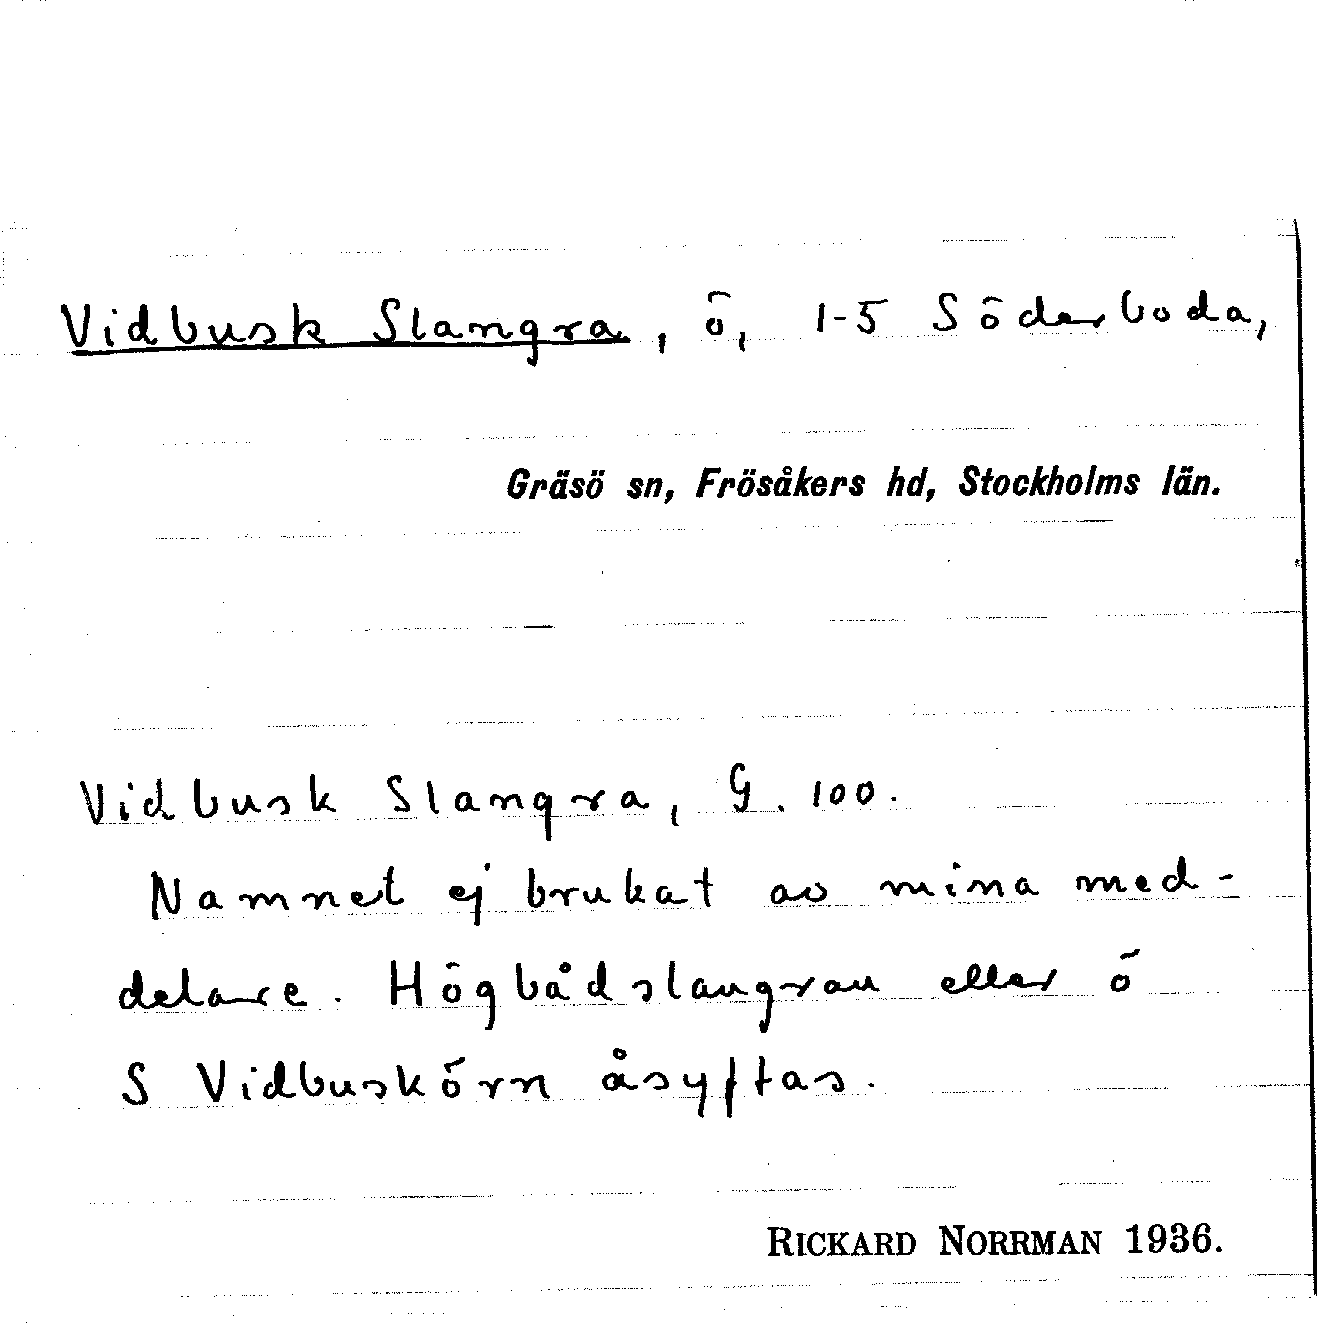 Vidbusk Slangra, ö, 1-5 Söderboda,
Gräsö sn, Frösåkers hd, Stockholms län.
Vidbusk Slangra, G. 100.
Namnet ej brukat av mina med-
delare. Högbådslangran eller ö
S Vidbuskörn åsyftas.
RICKARD NORRMAN 1936.